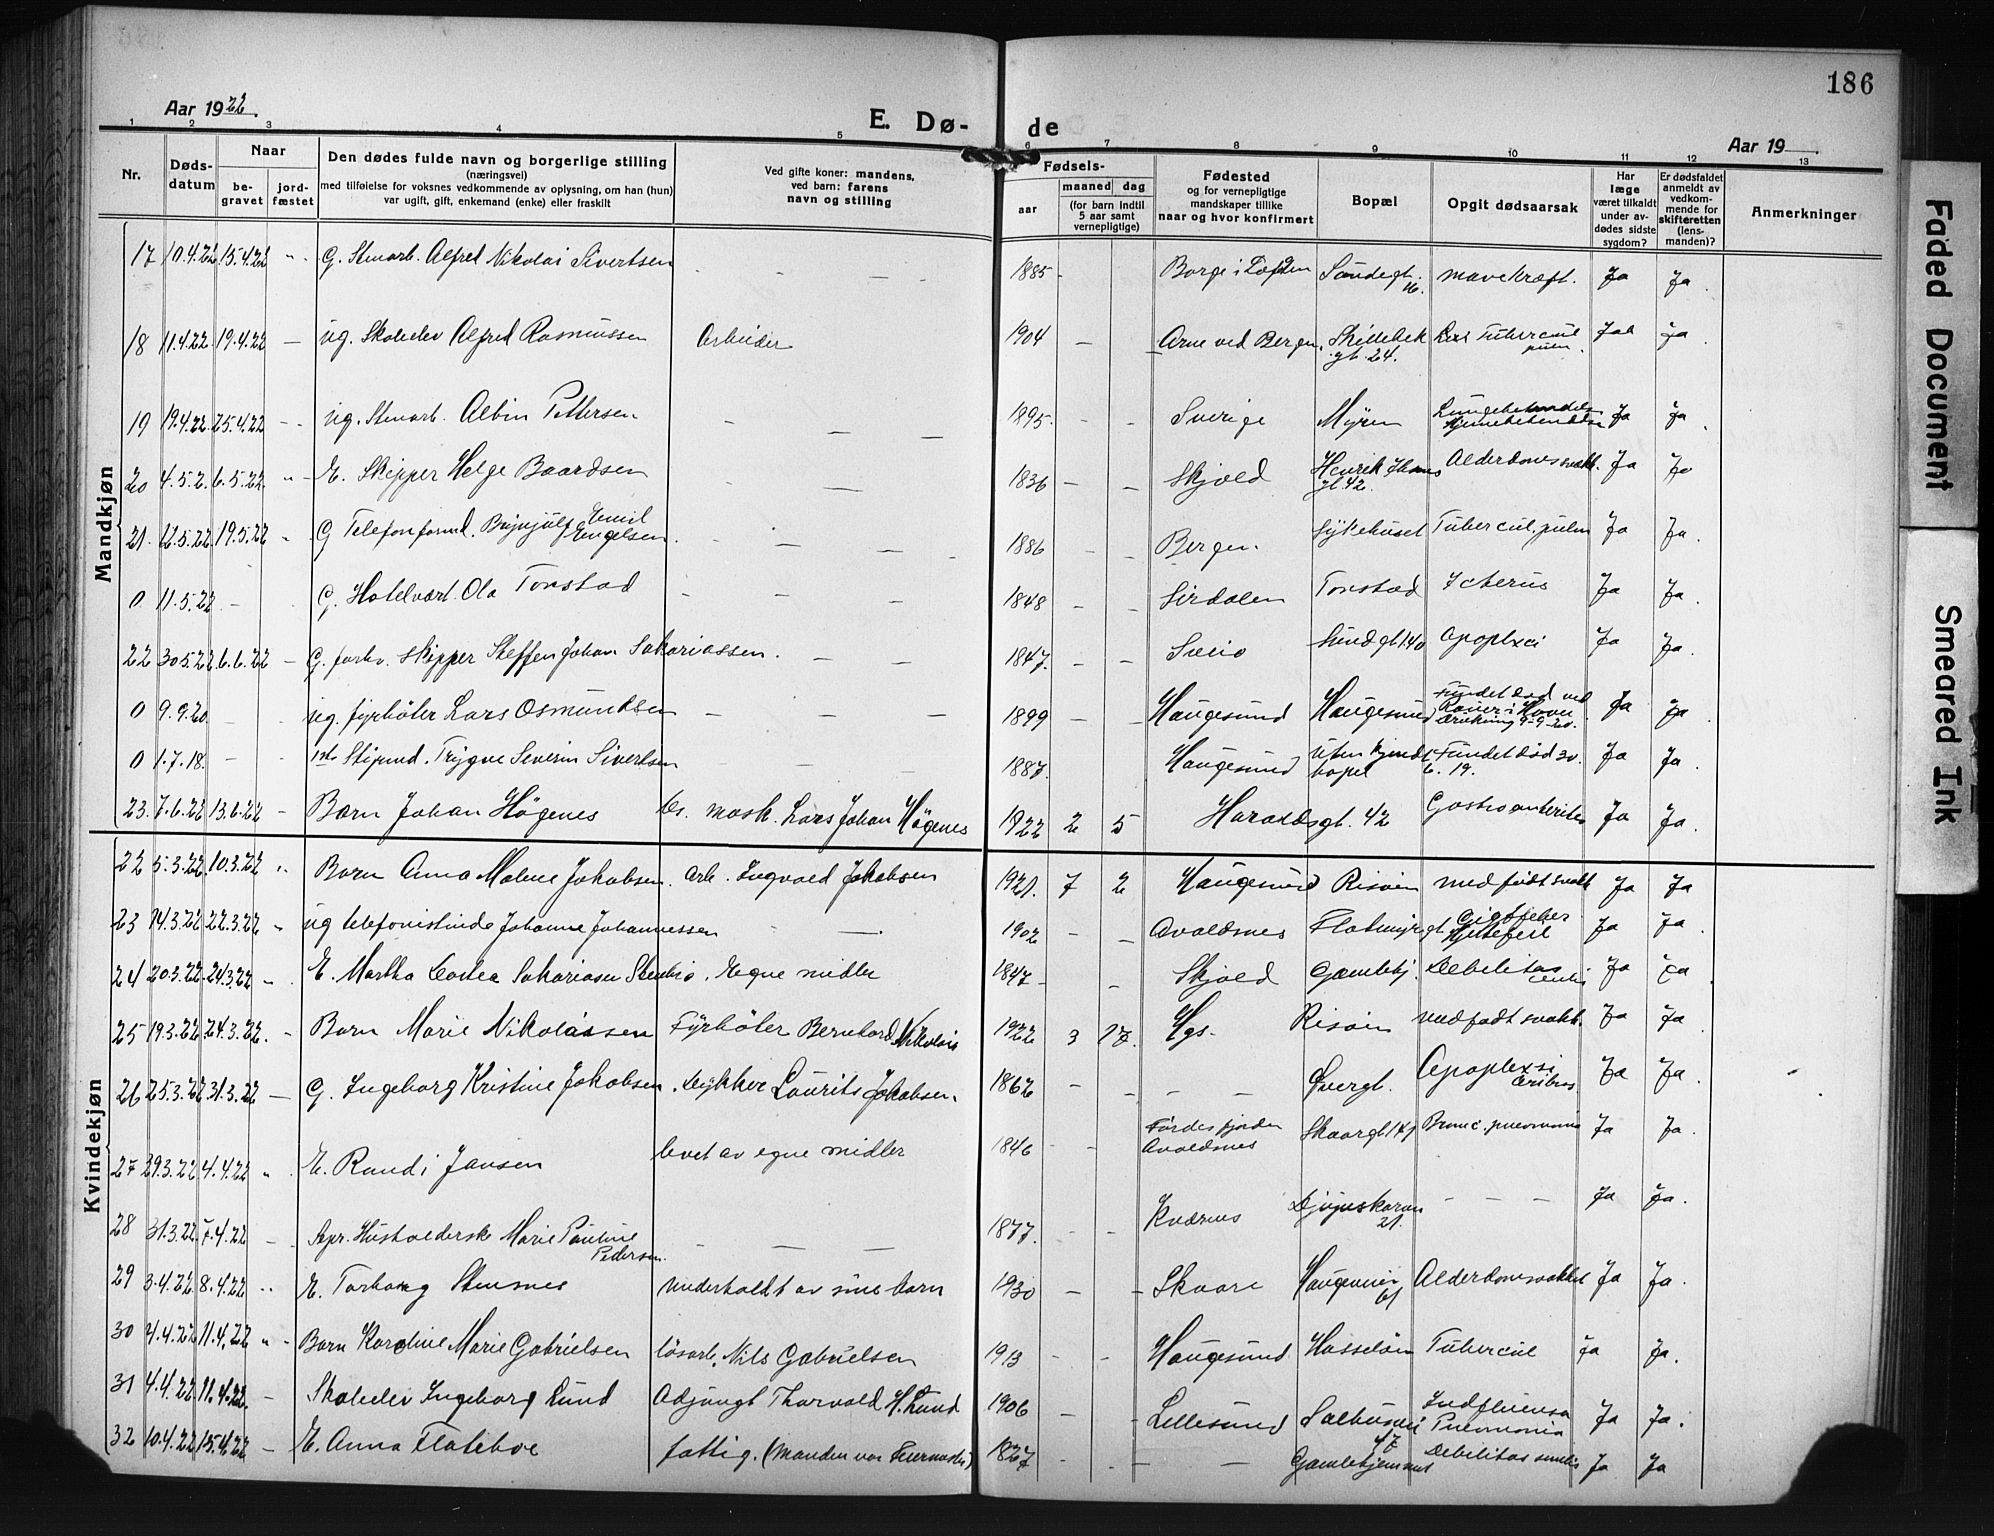 186
Aar 1922.
E. Dø-
de
Aar 19
1 2 3 4 5 6 7 8 9 10 11 12 13
Nr.
Døds-
datum
Naar
be-
gravet
jord-
fæstet
Den dødes fulde navn og borgerlige stilling
(næringsvei)
med tilføielse for voksnes vedkommende av oplysning, om han (hun)
var ugift, gift, enkemand (enke) eller fraskilt
Ved gifte koner: mandens,
ved barn: farens
navn og stilling
Fødsels-
aar
maaned dag
(for barn indtil
5 aar samt
vernepligtige)
Fødested
og for vernepligtige
mandskaper tillike
naar og hvor konfirmert
Bopæl
Opgit dødsaarsak
Har
læge
været tilkaldt
under av-
dødes sidste
sygdom?
Er dødsfaldet
anmeldt av
vedkom-
mende for
skifteretten
(lens-
manden)?
Anmerkninger
Mandkjøn
17 10.4.22 15.4.22 G. Stenarb. Alfred Nikolai Sivertsen 1885 Borge i Lofoten Sundegt. 16. mavekræft. Ja Ja.
18 11.4.22 19.4.22 — ug. Skoleelev Alfred Rasmussen Arbeider 1904 Arne ved Bergen. Skillebekgt. 24. Tubercul pulm. Ja Ja
19 19.4.22. 25.4.22 ug. Stenarb. Albin Pettersen 1895 Sverige Myren Ja Ja
20 4.5.2. 6.5.22. E. Skipper Helge Baardsen 1836 Skjold Henrik Ibsens gt. 42. Alderdomssvakh. Ja Ja
21. 12.5.22. 19.5.22 G Telefonformd. Brynjulf Emil Engelsen. 1886 Bergen. Sykehuset Tubercul. pulm Ja Ja.
0 11.5.22 G. Hotelvært. Ola Tonstad 1848 Sirdalen Tonstad Icterus Ja Ja.
22 30.5.22 6.6.22 — G. forhv. Skipper Steffen Johan Sakariassen. 1847. Sveio Sundgt. 40 Apoplexi Ja Ja.
0 9.9.20. ug. fyrbøter Lars Osmundsen 1899 Haugesund Haugesund Fundet død ved 9-9-20. Ja Ja
0 1.7.18. Styrmd. Trygve Severin Sivertsen 1887. Haugesund Uten kjendt bopel Fundet død 30. 6. 19. Ja Ja
23. 7.6.22 13.6.22 Barn Johan Høgenes mask. Lars Johan Høgenes 1922 2 5 Haraldsgt. 42 Gastroenterites Ja Ja.
Kvindekjøn
22 5.3.22. 10.3.22 Barn Anna Malene Jakobsen. Arb. Ingvald Jakobsen 1921. 7 2 Haugesund Risøen medfødt svakh Ja Ja
23 14.3.22 22.3.22 ug telefonistinde Johanne Johannessen 1902 Avaldsnes Flotmyrgt. Gigtfeber Hjertefeil Ja Ja
24 20.3.22. 24.3.22 E. Martha Sakariasen Egne midler 1847 Skjold Gamlehj. Debelitas Ja Ja
25 19.3.22 24.3.22. Barn Marie Nikolaisen Fyrbøter Bernhard Nikolais 1922 3 17. Hgs. Risøen medfødt svakh. Ja Ja
26 25.3.22 31.3.22 — G. Ingeborg Kristine Jakobsen. Dykker Laurits Jakobsen. 1862 Øvregt. Apoplexsi ceribras Ja Ja.
27 29.3.22 4.4.22 E. Randi Jansen levet av egne midler 1846 Førdesfjorden Avaldsnes Skaargt. Bronc. pneomonia Ja Ja.
28 31.3.22. 7.4.22 Sepr. Husholderske Marie Pauline Pedersen. 1877. Kværnes Djupaskaren 21. Ja Ja.
29 3.4.22 8.4.22 E. Torborg Stensnes underholdt av sine barn 1930 Skaare Haugeveien 61 Alderdomssvakhet Ja Ja.
30 4.4.22 11.4.22 Barn Karoline Marie Gabrielsen løsarb. Nils Gabrielsen 1913 Haugesund Hasseløen Tubercul Ja Ja.
31 4.4.22 11.4.22. Skoleelev Ingeborg Lund Adjungt Thorvald H. Lund 1906 Lillesund Salhusvei 47 Indfluensa Pneomonia Ja Ja.
32 10.4.22 15.4.22 — E. Anna Flateboe fattig. (manden var Feiermester) 1827 Gamlehjemmet Debelitas senelis Ja Ja
Faded Document
Smeared Ink